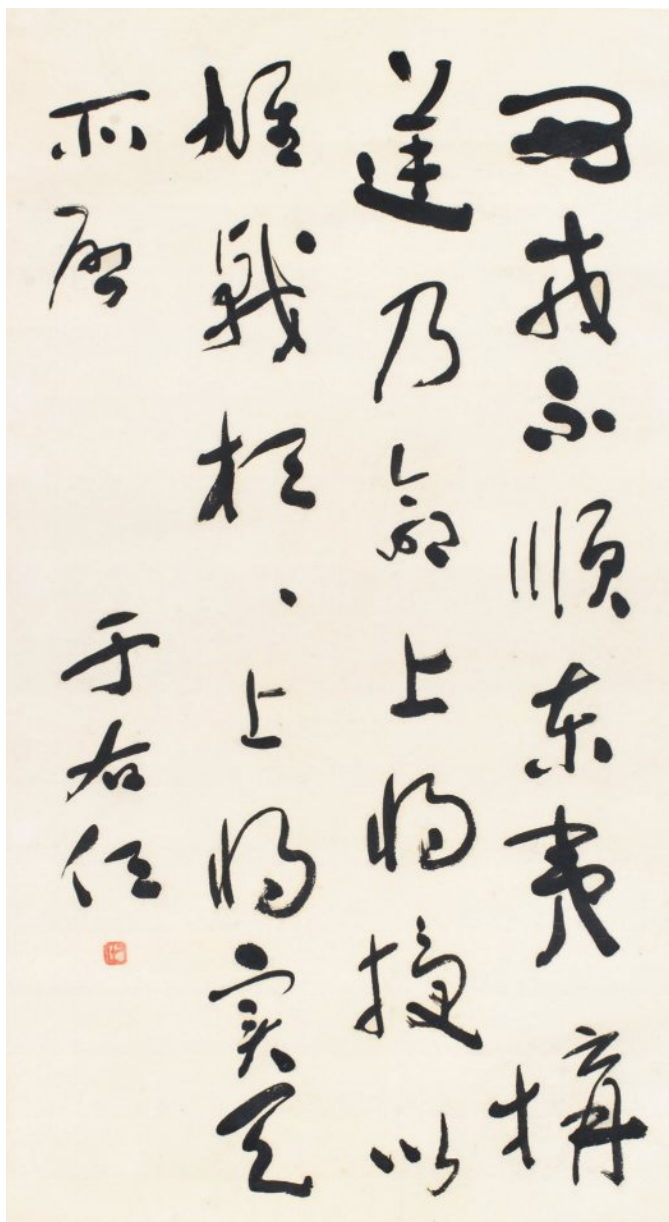 西戎不順東夷構
逆乃命上將授以
雄戟桓、上將實天
所啟
于右任